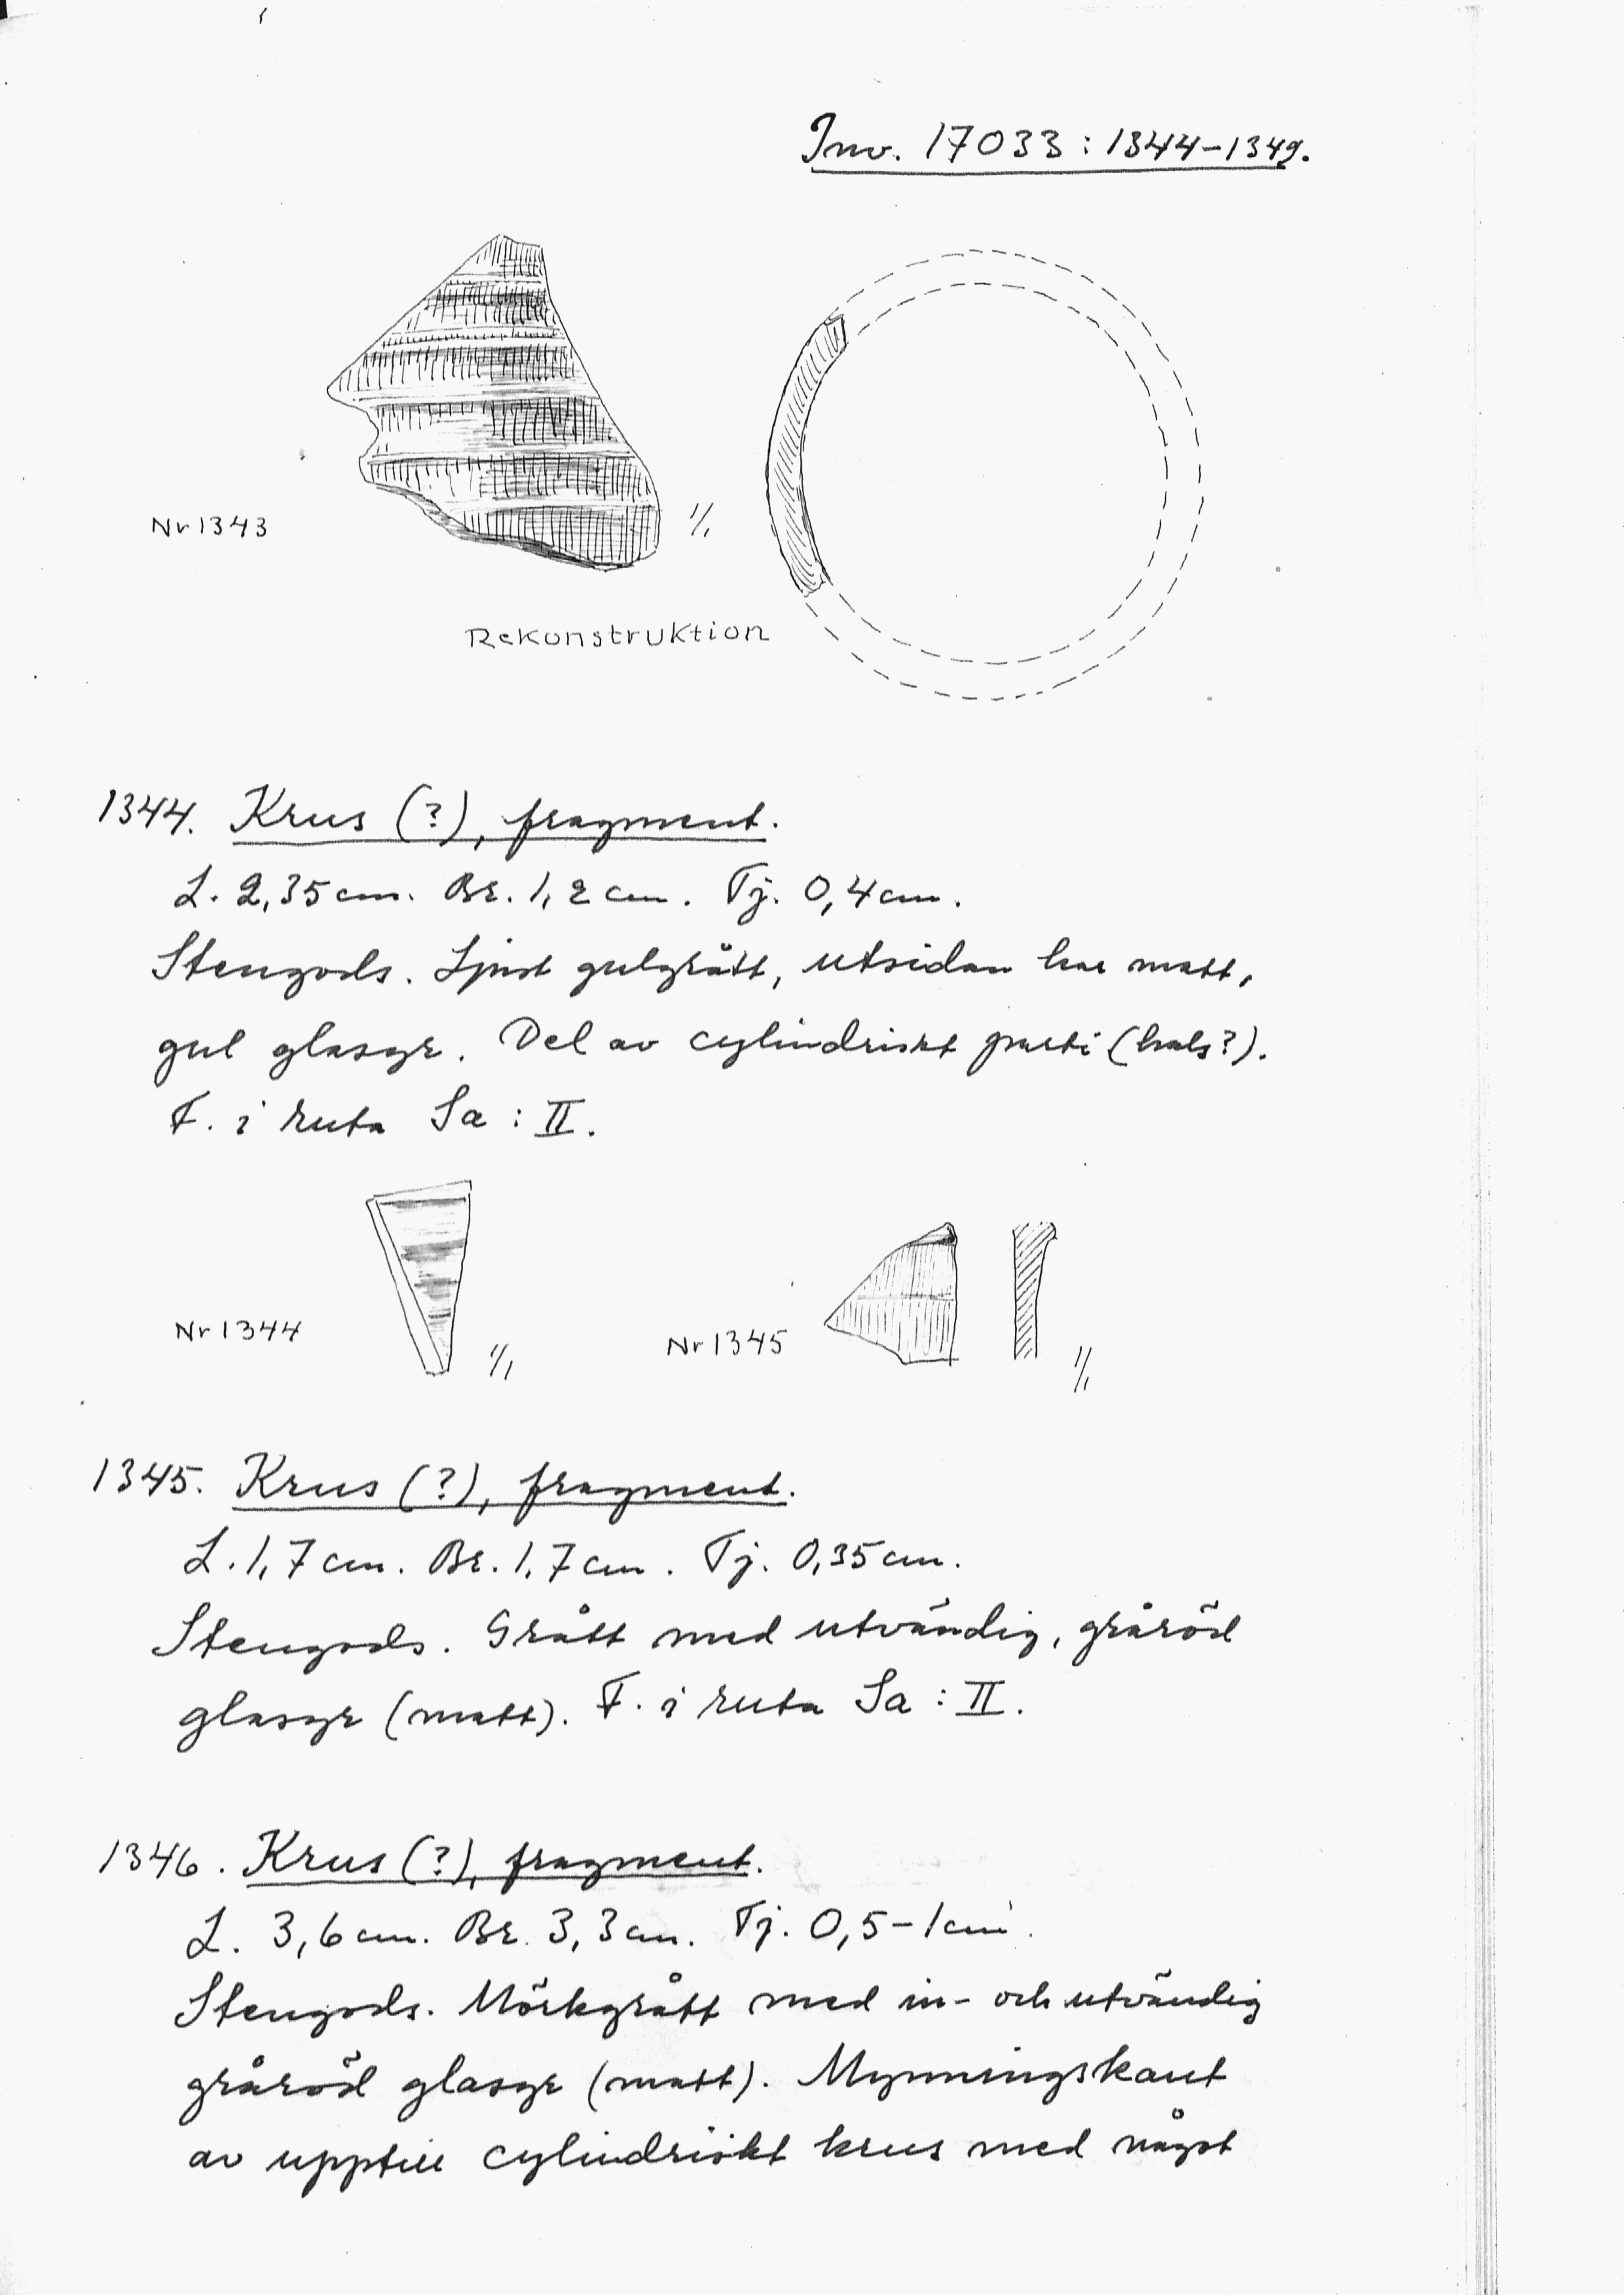 Inv. 17033 : 1344-1349.
Nr 1343
1/1
Rekonstruktion
1344. Krus (?), fragment.
L. 2,35 cm. Br. 1,2 cm. Tj. 0,4 cm.
Stengods. Ljust gulgrått, utsidan har matt,
gul glasyr. Del av cylindriskt parti (hals?).
F. i ruta Sa : II.
Nr 1344
1/1
Nr 1345
1/1
1345. Krus (?), fragment.
L. 1,7 cm. Br. 1,7 cm. Tj. 0,35 cm.
Stengods. Grått med utvändig, gråröd
glasyr (matt). F. i ruta Sa : II.
1346. Krus (?), fragment.
L. 3,6 cm. Br. 3,3 cm. Tj. 0,5-1 cm.
Stengods. Mörkgrått med in- och utvändig
gråröd glasyr (matt). Mynningskant
av upptill cylindriskt krus med något